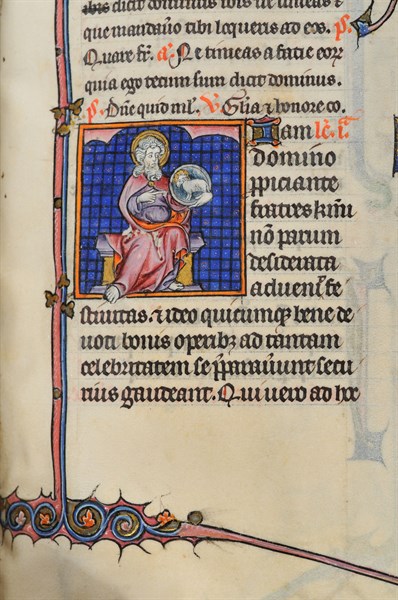 dicit dominus
que mandavo tibi loqueris ad eos. p̃.
Quare fr̃. a. Ne timeas a facie eorꝝ
quia ego tecum sum dicit dominus.
p̃. Dñe quid ml̃. v̄. Gl̃ia ⁊ honore co.
Iam lc̃. i.ᵃ
domino
ꝓpiciante
fratres kr̃mi
nõ parum
desiderata
advenit fe
stivitas. ⁊ ideo quicumqꝫ bene de
voti bonis operibꝫ ad tantam
celebritatem se p̃paraverunt secu
rius gaudeant. Qui vero ad hoc